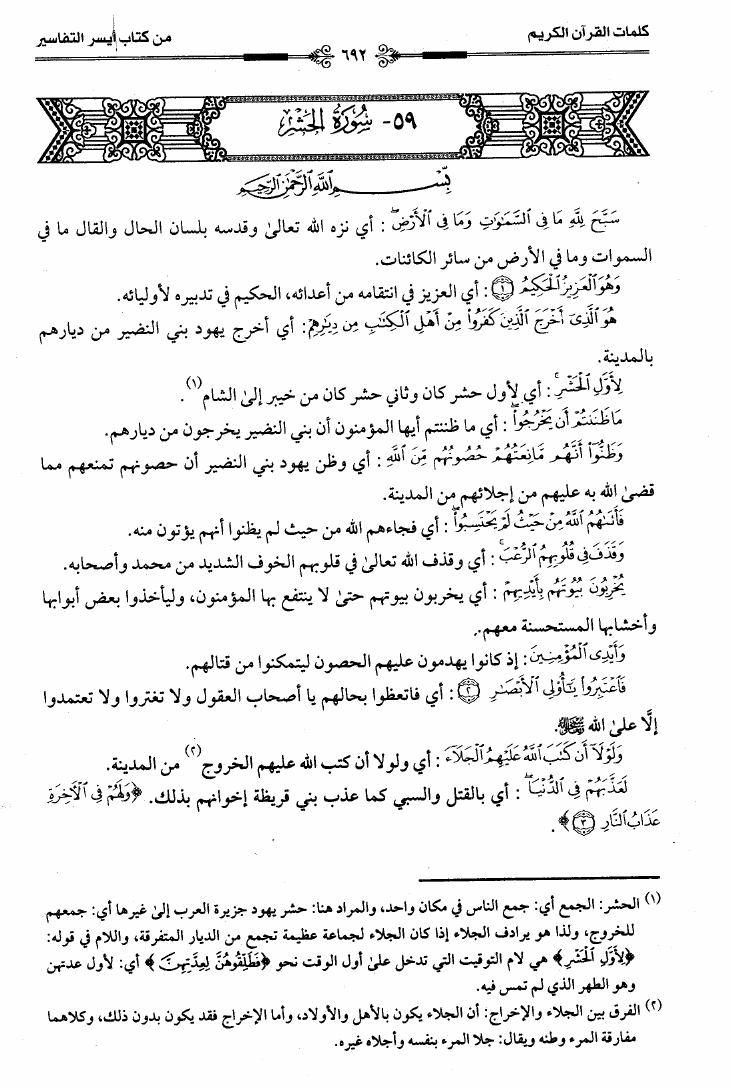 كلمات القرآن الكريم
٦٩٢
من كتاب أيسر التفاسير
٥٩- سُورَةُ الحَشْرِ
بِسْمِ اللَّهِ الرَّحْمَٰنِ الرَّحِيمِ
سَبَّحَ لِلَّهِ مَا فِي السَّمَٰوَٰتِ وَمَا فِي الْأَرْضِ ۖ : أي نزه الله تعالىٰ وقدسه بلسان الحال والقال ما في
السموات وما في الأرض من سائر الكائنات.
وَهُوَ الْعَزِيزُ الْحَكِيمُ ﴿١﴾: أي العزيز في انتقامه من أعدائه، الحكيم في تدبيره لأوليائه.
هُوَ الَّذِي أَخْرَجَ الَّذِينَ كَفَرُوا مِنْ أَهْلِ الْكِتَٰبِ مِن دِيَٰرِهِمْ: أي أخرج يهود بني النضير من ديارهم
بالمدينة.
لِأَوَّلِ الْحَشْرِ ۚ : أي لأول حشر كان وثاني حشر كان من خيبر إلىٰ الشام(١).
مَا ظَنَنتُمْ أَن يَخْرُجُوا ۖ : أي ما ظننتم أيها المؤمنون أن بني النضير يخرجون من ديارهم.
وَظَنُّوا أَنَّهُم مَّانِعَتُهُمْ حُصُونُهُم مِّنَ اللَّهِ : أي وظن يهود بني النضير أن حصونهم تمنعهم مما
قضىٰ الله به عليهم من إجلائهم من المدينة.
فَأَتَىٰهُمُ اللَّهُ مِنْ حَيْثُ لَمْ يَحْتَسِبُوا ۖ : أي فجاءهم الله من حيث لم يظنوا أنهم يؤتون منه.
وَقَذَفَ فِي قُلُوبِهِمُ الرُّعْبَ ۚ : أي وقذف الله تعالىٰ في قلوبهم الخوف الشديد من محمد وأصحابه.
يُخْرِبُونَ بُيُوتَهُم بِأَيْدِيهِمْ : أي يخربون بيوتهم حتىٰ لا ينتفع بها المؤمنون، وليأخذوا بعض أبوابها
وأخشابها المستحسنة معهم.
وَأَيْدِي الْمُؤْمِنِينَ : إذ كانوا يهدمون عليهم الحصون ليتمكنوا من قتالهم.
فَاعْتَبِرُوا يَٰٓأُولِي الْأَبْصَٰرِ ﴿٢﴾ : أي فاتعظوا بحالهم يا أصحاب العقول ولا تغتروا ولا تعتمدوا
إلَّا علىٰ الله.
وَلَوْلَا أَن كَتَبَ اللَّهُ عَلَيْهِمُ الْجَلَاءَ : أي ولولا أن كتب الله عليهم الخروج(٢) من المدينة.
لَعَذَّبَهُمْ فِي الدُّنْيَا ۖ : أي بالقتل والسبي كما عذب بني قريظة إخوانهم بذلك. ﴿وَلَهُمْ فِي الْآخِرَةِ
عَذَابُ النَّارِ ﴿٣﴾﴾.
(١) الحشر: الجمع أي: جمع الناس في مكان واحد، والمراد هنا: حشر يهود جزيرة العرب إلىٰ غيرها أي: جمعهم
للخروج، ولذا هو يرادف الجلاء إذا كان الجلاء لجماعة عظيمة تجمع من الديار المتفرقة، واللام في قوله:
﴿لِأَوَّلِ الْحَشْرِ﴾ هي لام التوقيت التي تدخل علىٰ أول الوقت نحو ﴿فَطَلِّقُوهُنَّ لِعِدَّتِهِنَّ﴾ أي: لأول عدتهن
وهو الطهر الذي لم تمس فيه.
(٢) الفرق بين الجلاء والإخراج: أن الجلاء يكون بالأهل والأولاد، وأما الإخراج فقد يكون بدون ذلك، وكلاهما
مفارقة المرء وطنه ويقال: جلا المرء بنفسه وأجلاه غيره.